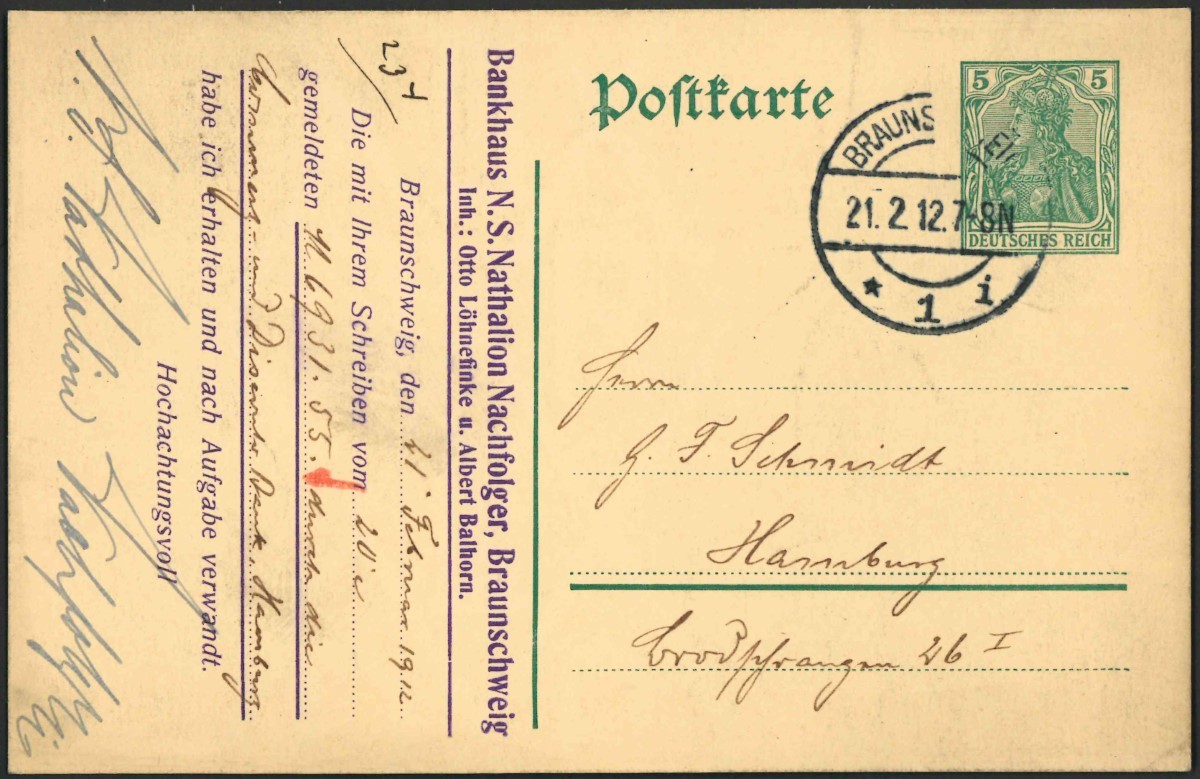 Postkarte
5 5
DEUTSCHES REICH
BRAUNS
21. 2 12. 7-8N
* 1 i
Herrn
G. F. Schmidt
Hamburg
Brodschrangen 26 I
Bankhaus N. S. Nathalion Nachfolger, Braunschweig
Inh.: Otto Löhnefinke u. Albert Balhorn.
Braunschweig, den 21 Februar 1912
Die mit Ihrem Schreiben vom 20
gemeldeten M. 6931.55. durch die
Commerz- und Disconto Bank, Hamburg
habe ich erhalten und nach Aufgabe verwandt.
Hochachtungsvoll
N. S. Nathalion Nachfolger